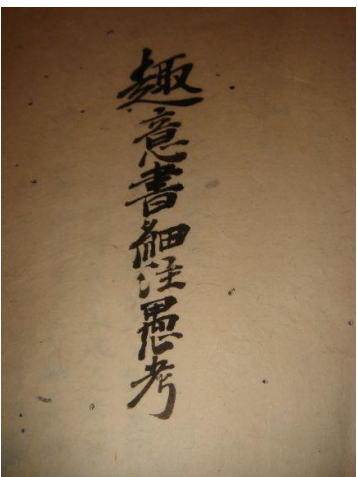 趣意書細注愚考